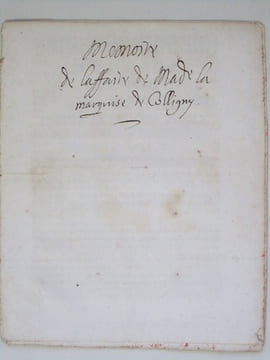 Memoire
de laffaire de Made la
marquise de Colligny